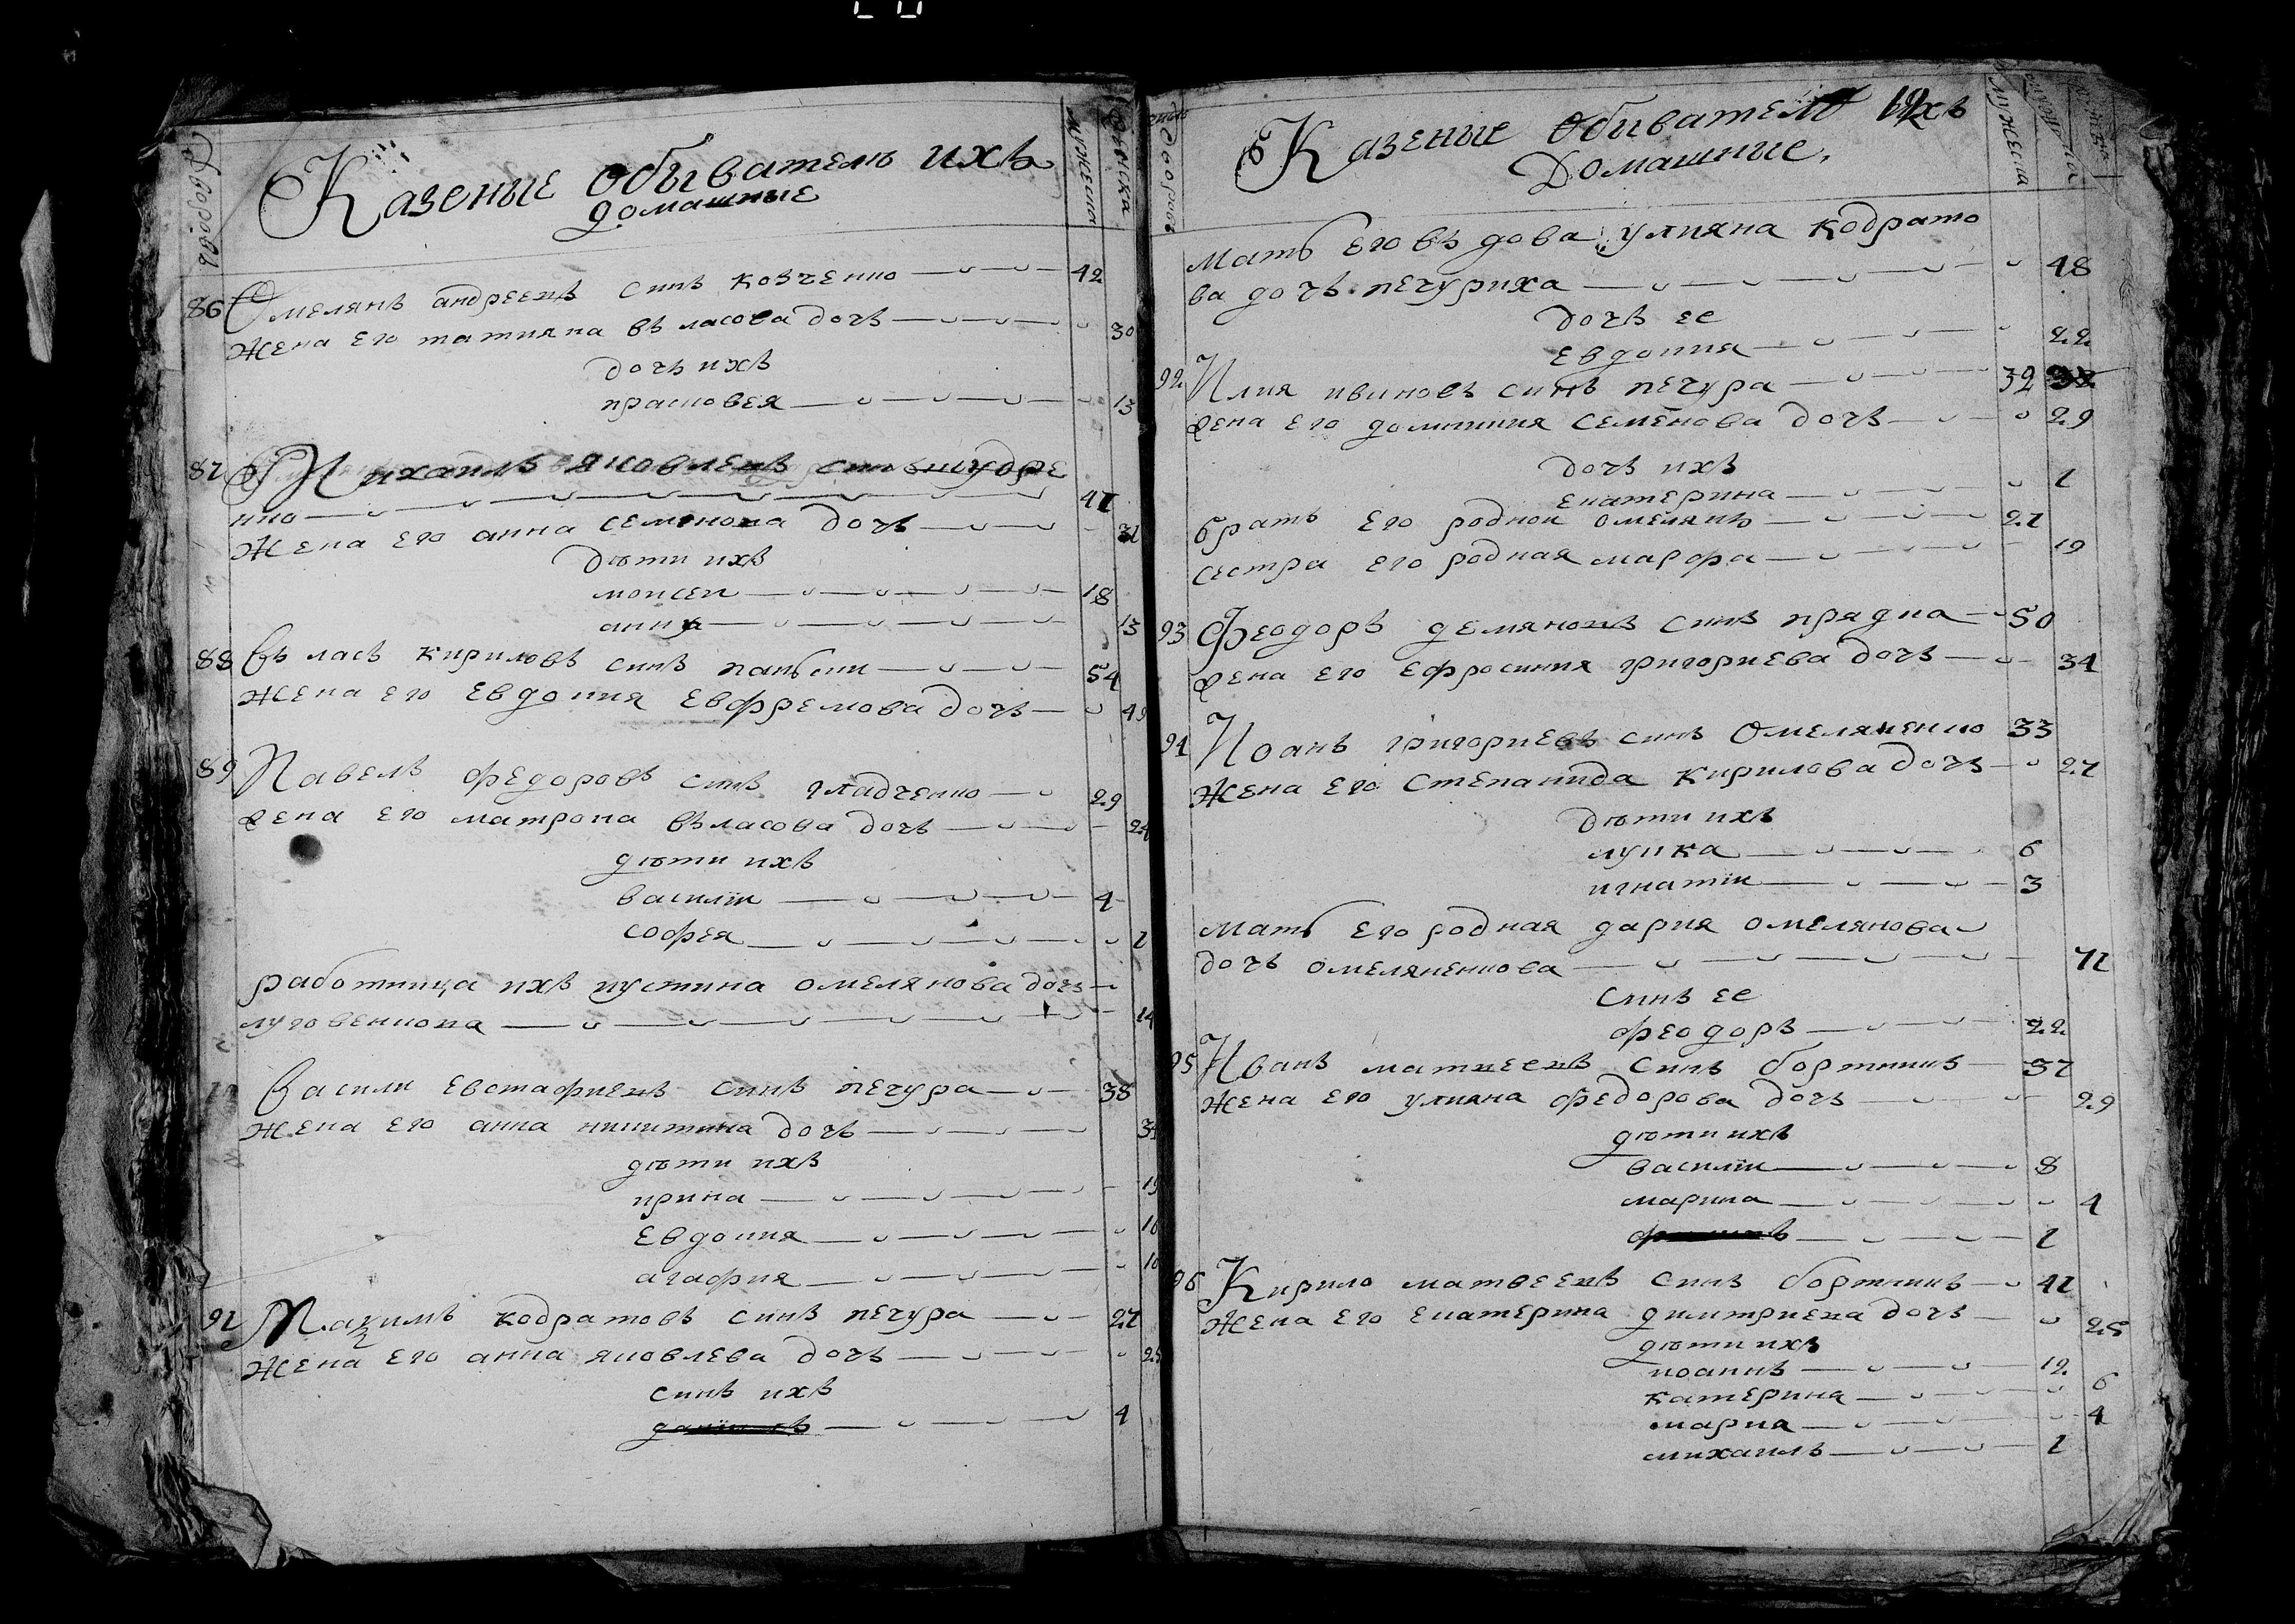 дворовъ
Казеные обыватель ихъ
домашные
мужеска
женска
86 Омелянъ андреевъ синъ ковченко 42
Жена его татияна въласова дочъ 30
дочъ ихъ
прасковея 13
87 Михаилъ яковлевъ синъ
нко 41
Жена его анна семенова дочъ 31
дѣти ихъ
моисеи 18
анна 13
88 Въласъ кириловъ синъ 54
жена его Евдокия Евфремова дочъ 49
89 Павелъ федоровъ синъ гладченко 29
жена его матрона въласова дочъ 24
дѣти ихъ
василіи 4
софея 1
работница ихъ иустина омелянова дочъ
луговенкова 14
Васили Евстафиевъ синъ печура 38
Жена его анна никитина дочъ
дѣти ихъ
ирина 19
Евдокия 16
агафия 10
91 Мазимъ кодратовъ синъ печура 27
Жена его анна яковлева дочъ 25
синъ ихъ
4
дворовъ
Казеные Обывателѣ ихъ
Домашные.
мужеска
Мать Его въдова улияна кодрато
ва дочъ печуриха 48
дочъ ее
Евдокия 22
92 Илия ивановъ синъ печура 32
жена его домникия семенова дочъ 29
дочъ ихъ
екатерина 1
братъ его роднои омелянъ 27
сестра его родная марфа 19
93 Феодоръ демяновъ синъ прядка 50
жена его ефросиния григориева дочъ 34
94 Иоанъ григориевъ синъ Омеляненко 33
Жена его степанида кирилова дочъ 27
дѣти ихъ
лукка 6
игнатіи 3
мать Его родная дария омелянова
дочъ омеляненкова 71
синъ ее
феодоръ 22
95 Иванъ матвеевъ синъ бортникъ 37
Жена его улияна федорова дочъ 29
дѣти ихъ
василіи 8
марина 4
1
96 Кирило матвеевъ синъ бортникъ 41
Жена его екатерина димитриева дочъ 25
дѣти ихъ
иоаннъ 12
катерина 6
мария 4
михаилъ 1